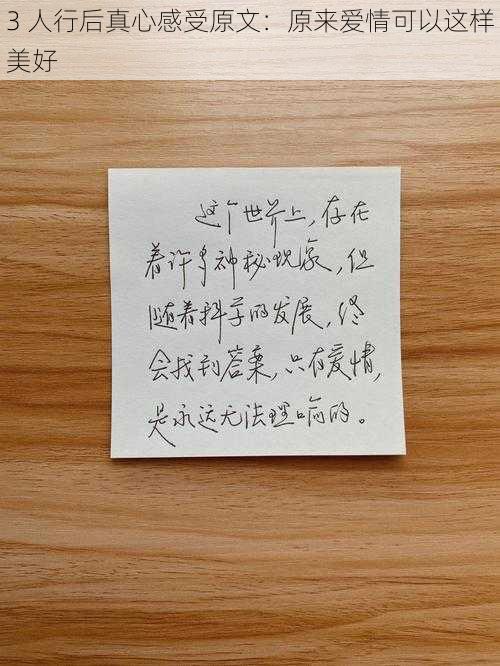 3 人行后真心感受原文：原来爱情可以这样
美好
这个世界上，存在
着许多神秘现象，但
随着科学的发展，终
会找到答案，只有爱情，
是永远无法理喻的。